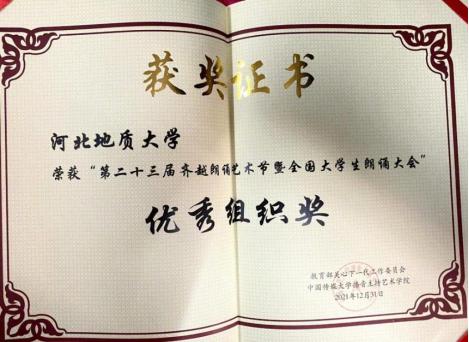 获奖证书
河北地质大学
荣获“第二十三届齐越朗诵艺术节暨全国大学生朗诵大会”
优秀组织奖
教育部关心下一代工作委员会
中国传媒大学播音主持艺术学院
2021年12月31日